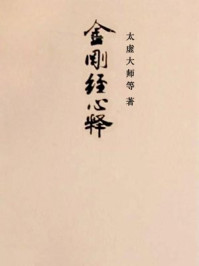 金剛经心释
太虚大师等 著